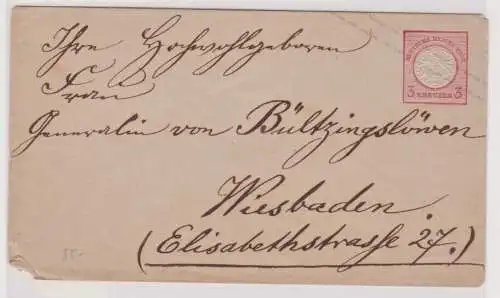 Ihre Hochwohlgeboren
Frau
Generalin von Bültzingslöwen
Wiesbaden.
(Elisabethstrasse 27.)
3 KREUZER 3